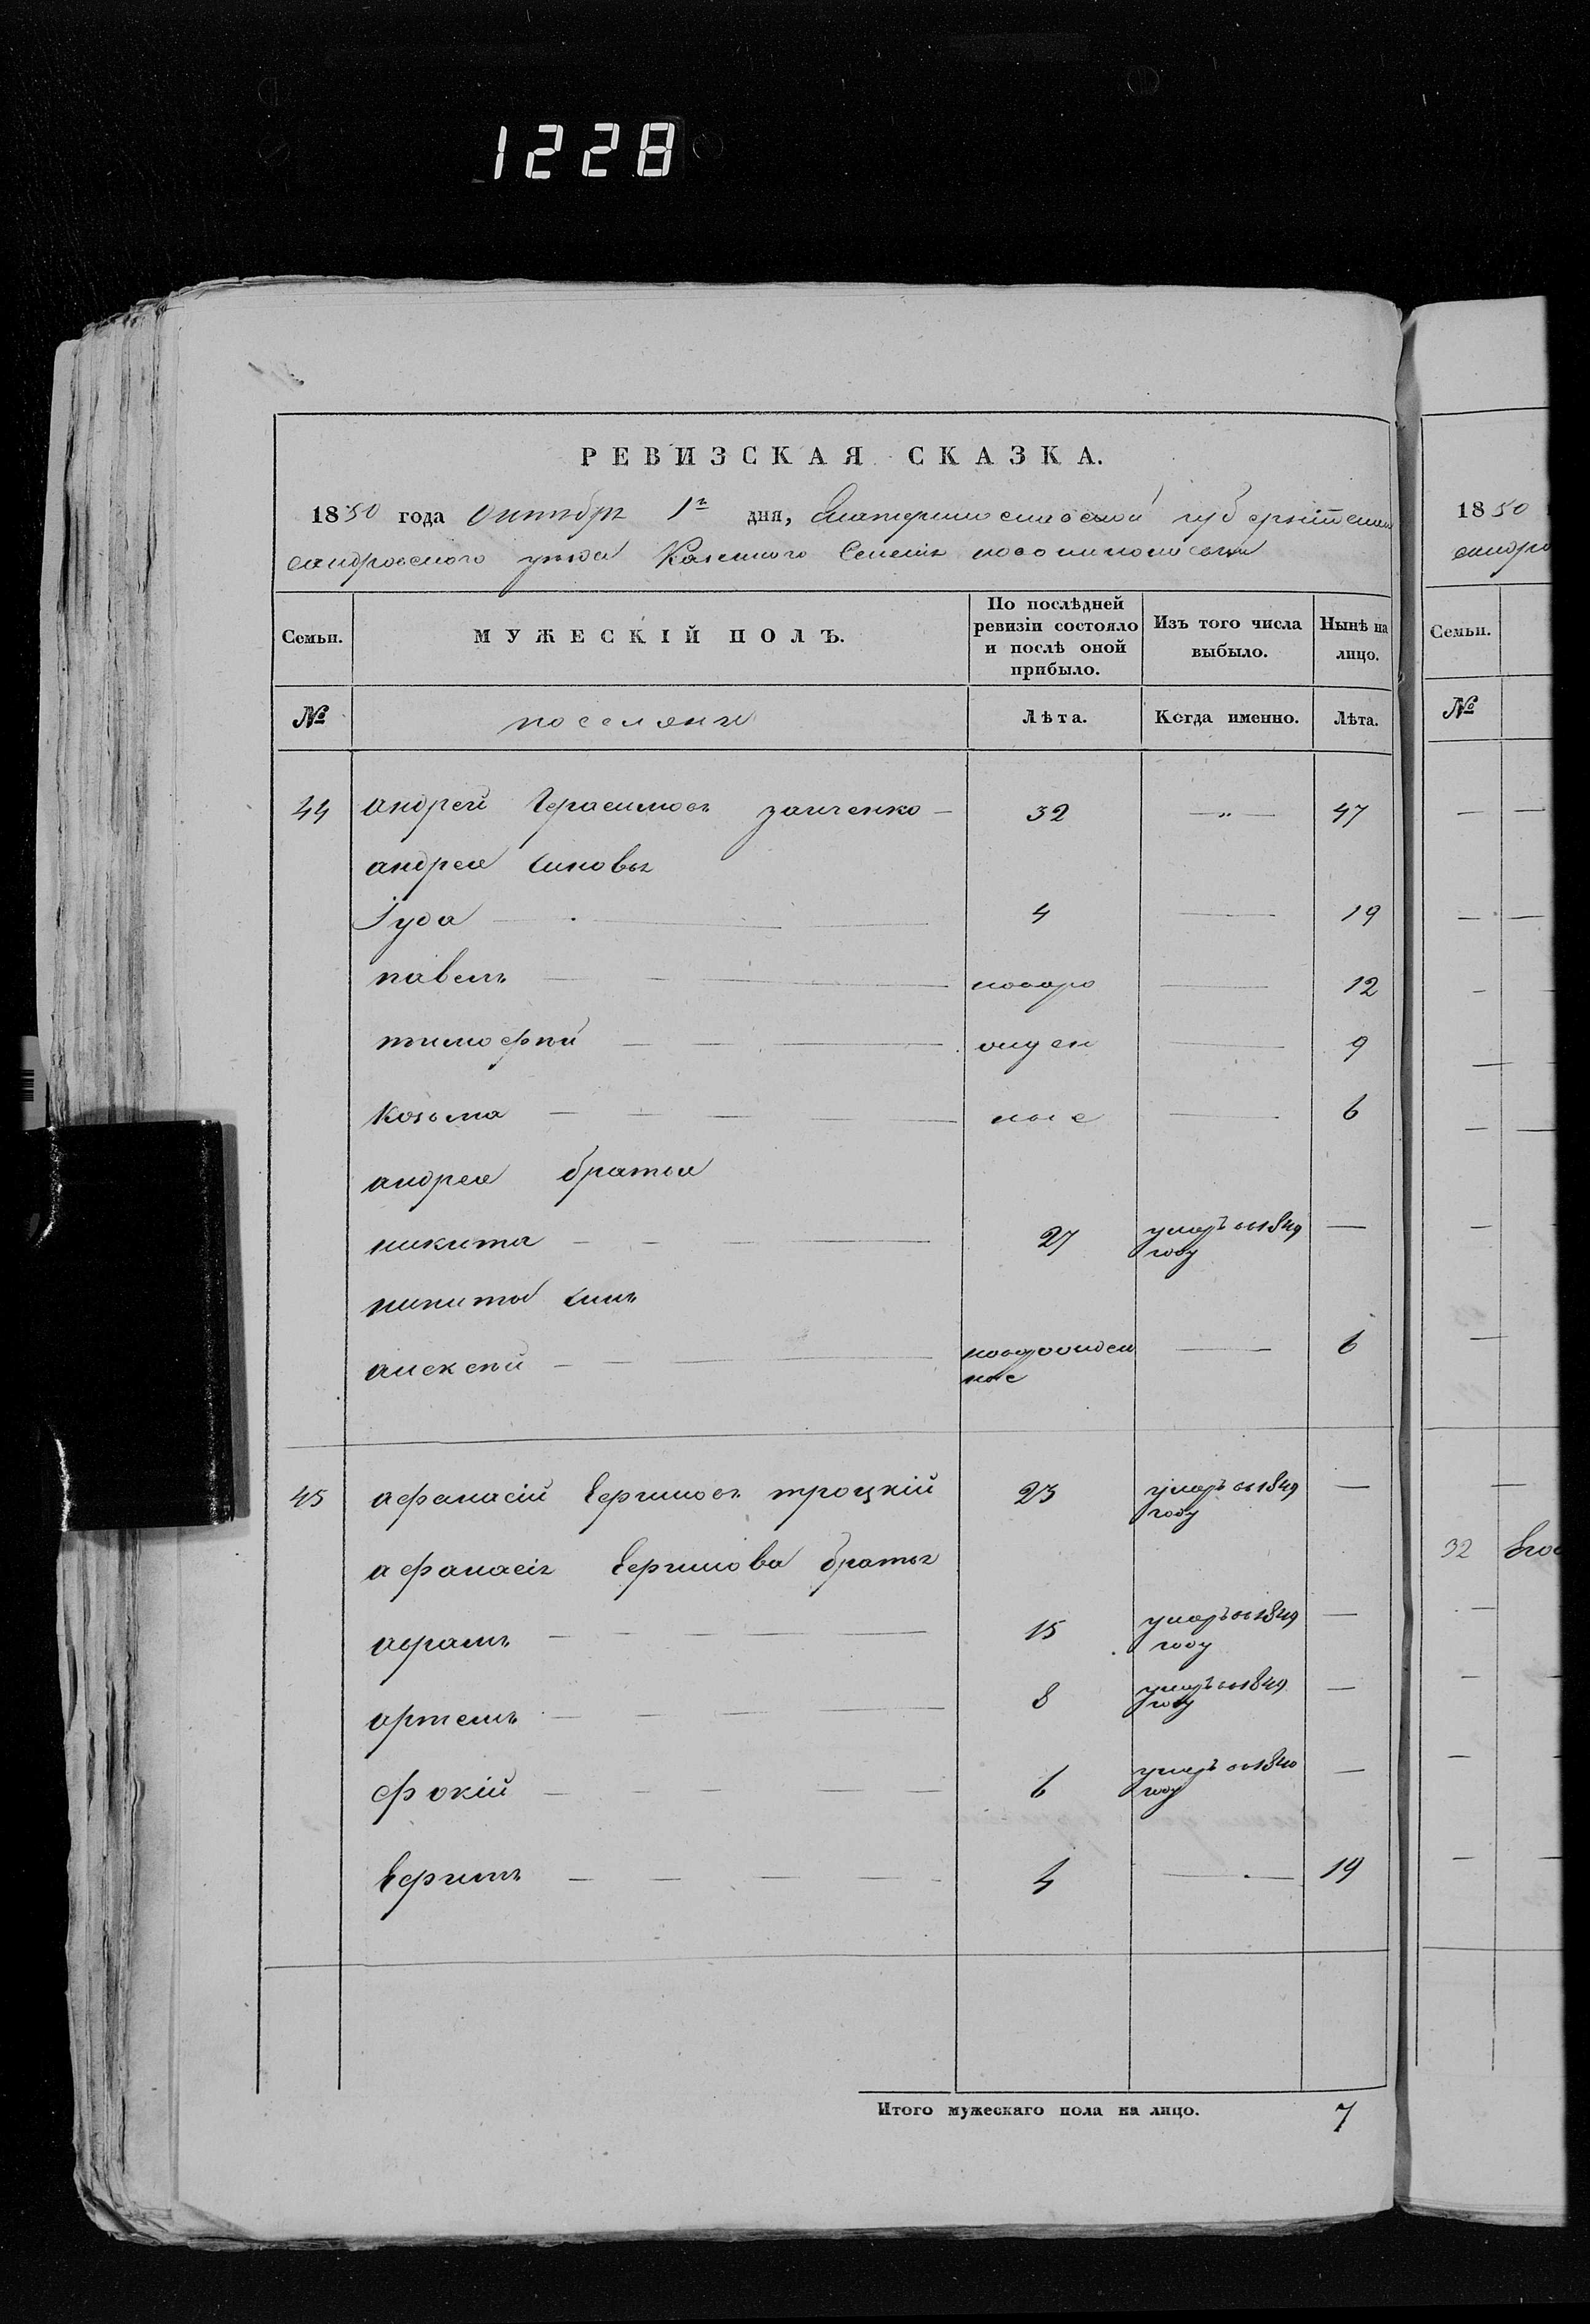 1228
РЕВИЗСКАЯ СКАЗКА.
1850 года Октября 1го дня, Екатеринославской губерніи Алек
сандровского уезда Казенного Селенія
Семьи.
МУЖЕСКІЙ ПОЛЪ.
По послѣдней
ревизіи состояло
и послѣ оной
прибыло.
Изъ того числа
выбыло.
Нынѣ на
лицо.
№
поселяне
Лѣта.
Когда именно.
Лѣта.
44 андрей Герасимовъ заиченко — 32 — " — 47
андрея сыновья
Іуда — 4 — 19
павелъ — новоро — 12
тимофѣй — жден — 9
Козьма — ные — 6
андрея братья
никита — 27 умеръ въ 1849 —
году
никиты сынъ
алексѣй — новорожден — 6
ные
45 афанасій Ефимовъ троцкій 23 умеръ въ 1849 —
году
афанасія Ефимова братья
аврамъ — 15 умеръ въ 1849 —
году
артемъ — 8 умеръ въ 1849 —
году
фокій — 6 умеръ въ 1840 —
году
Ефимъ — 4 — 19
Итого мужескаго пола на лицо. 7
1850
сандро
Семьи.
№
32